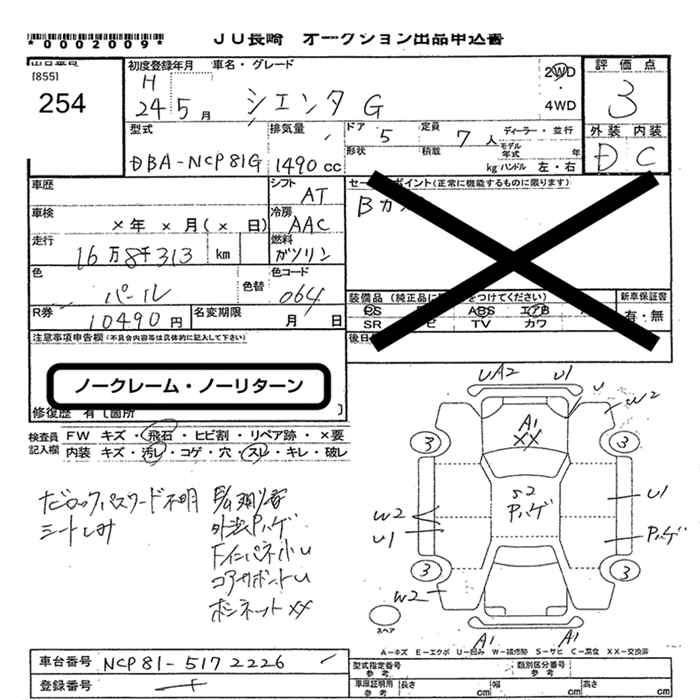 JU長崎 オークション出品申込書
*0002009*
[855]
254
初度登録年月
車名・グレード
H
24 5 月
シエンタ G
2WD
・
4WD
評価点
3
外装 内装
D C
型式
DBA-NCP81G
排気量
1490 cc
ドア 5
形状
定員 7 人
積載 kg
ディーラー・並行
モデル年式 年
ハンドル 左・右
車歴
シフト AT
車検
×年 ×月(×日)
冷房 AAC
走行
16万8千313 km
燃料
ガソリン
色
パール
色替
色コード
064
R券
10490円
名変期限 月 日
セールスポイント(正常に機能するものに限ります)
Bカ
装備品
新車保証書
有・無
PS ABS エアB
SR TV カワ
注意事項申告欄(不具合内容等は具体的に記入して下さい)
ノークレーム・ノーリターン
修復歴 有〔箇所 〕
検査員記入欄
FW キズ・飛石・ヒビ割・リペア跡・×要
内装 キズ・汚レ・コゲ・穴・スレ・キレ・破レ
パスワード不明
シートしみ
外装Pハゲ
コアサポートU
ボンネットXX
UA2 U1
U
W2
A1
XX
3 3
S2
Pハゲ
U1
W2
U1
Pハゲ
3 3
W2
A1 A1
スペア
A-キズ E-エクボ U-凹み W-補修跡 S-サビ C-腐食 XX-交換済
車台番号 NCP81-5172226
登録番号
型式指定番号 参考
類別区分番号 参考
車庫証明用 参考
長さ cm 幅 cm 高さ cm